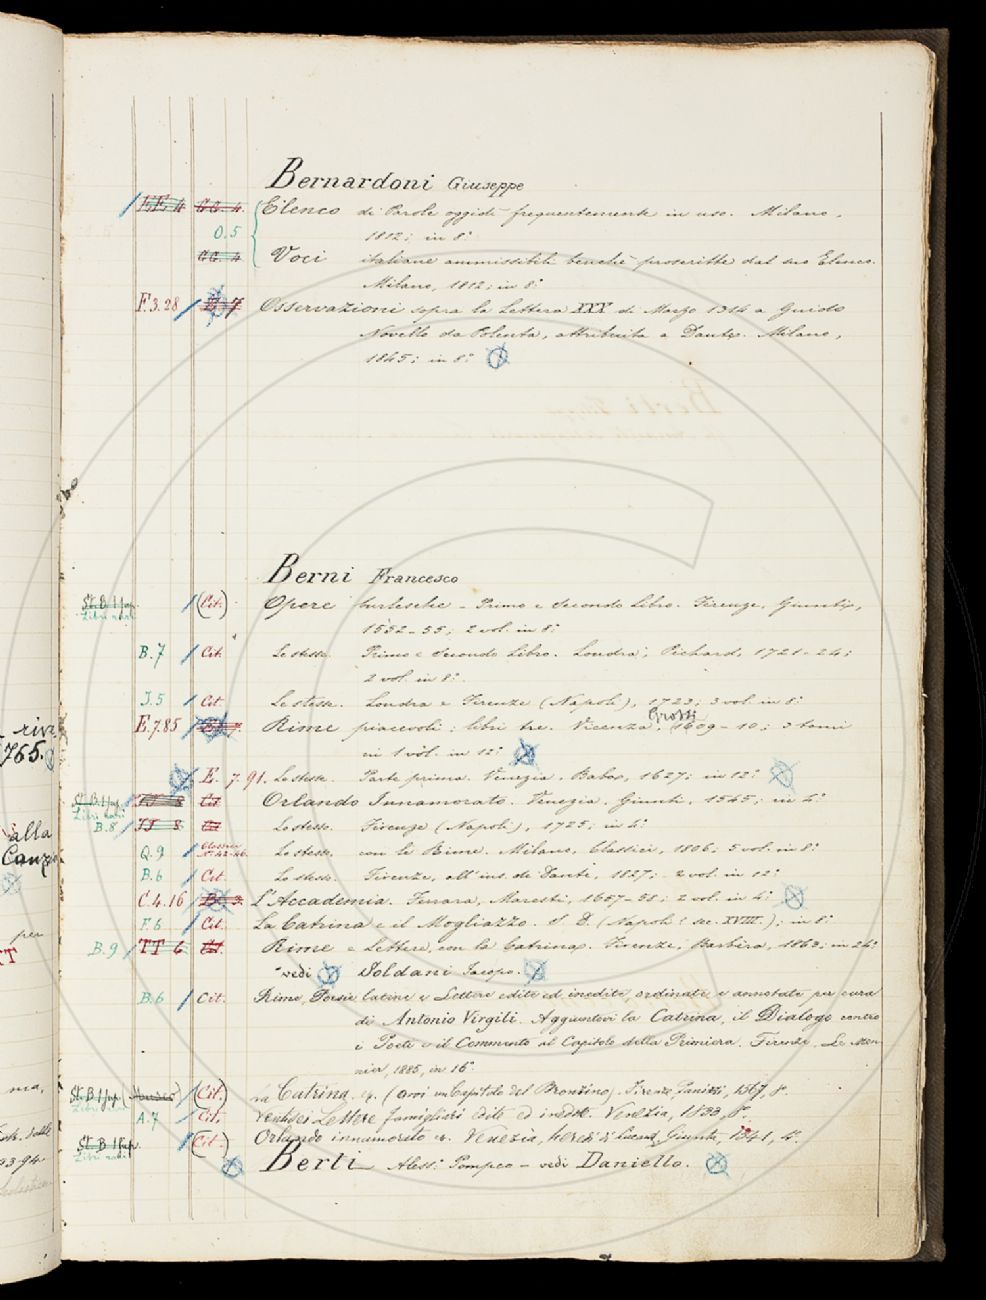 Bernardoni Giuseppe
EE. 4 CC. 4. Elenco di Parole oggidì frequentemente in uso. Milano,
O.5 1812; in 8°
CC. 4 Voci italiane ammissibili benchè proscritte dal suo Elenco.
Milano, 1812; in 8°
F.3.28 Osservazioni sopra la Lettera XXX di Marzo 1314 a Guido
Novello da Polenta, attribuita a Dante. Milano,
1845; in 8°
Berni Francesco
St. B. 1 (Cit.) Opere burlesche - Primo e Secondo Libro. Firenze, Giunti,
Libri rari 1552-55; 2 vol. in 8°
B.7 Cit. Le stesse. Primo e Secondo Libro. Londra, Pichard, 1721-24;
2 vol. in 8°.
J.5 Cit. Le stesse. Londra e Firenze (Napoli), 1723; 3 vol. in 8°
Grossi
E.7.85 Rime piacevoli: libri tre. Vicenza, 1609-10; 3 tomi
in 1 vol. in 12°
E. 7.91. Le stesse. Parte prima. Venezia. Baba, 1627; in 12°
St. B. 1 Cit Orlando Innamorato. Venezia, Giunti, 1545; in 4°
Libri rari
B.8 8 Lo stesso. Firenze (Napoli), 1725; in 4°
Q.9 Classici N° 42-46. Lo stesso. con le Rime. Milano, Classici, 1806; 5 vol. in 8°
B.6 Cit. Lo stesso. Firenze, all'ins. di Dante, 1827; 2 vol. in 12°
C.4.16 B. 3. L'Accademia. Ferrara, Maresti, 1657-58; 2 vol. in 4°
F.6 Cit. La Catrina e il Mogliazzo. S. D. (Napoli: sec. XVIII.); in 8°
B.9 TT 6 Cit. Rime e Lettere, con la Catrina. Firenze, Barbèra, 1863; in 24°
vedi Soldani Jacopo.
B.6 Cit. Rime, Poesie latine e Lettere edite ed inedite, ordinate e annotate per cura
di Antonio Virgili. Aggiuntovi la Catrina, il Dialogo contro
i Poeti e il Commento al Capitolo della Primiera. Firenze, Le Mon-
nier, 1885, in 16°
St. B. 1 (Cit.) La Catrina (Con un Capitolo del Bronzino). Firenze, Panizzi, 1567, 8°.
Libri rari
A.7 Cit. Ventisei Lettere famigliari edite ed inedite. Venezia, 1833, 8°.
St. B. 1 (Cit.) Orlando innamorato Venezia, heredi di Lucant. Giunta, 1541, 4°.
Libri rari
Berti Aless. Pompeo - vedi Daniello.
riv
765.
alla
Canz
per
TT
ma,
93-94.